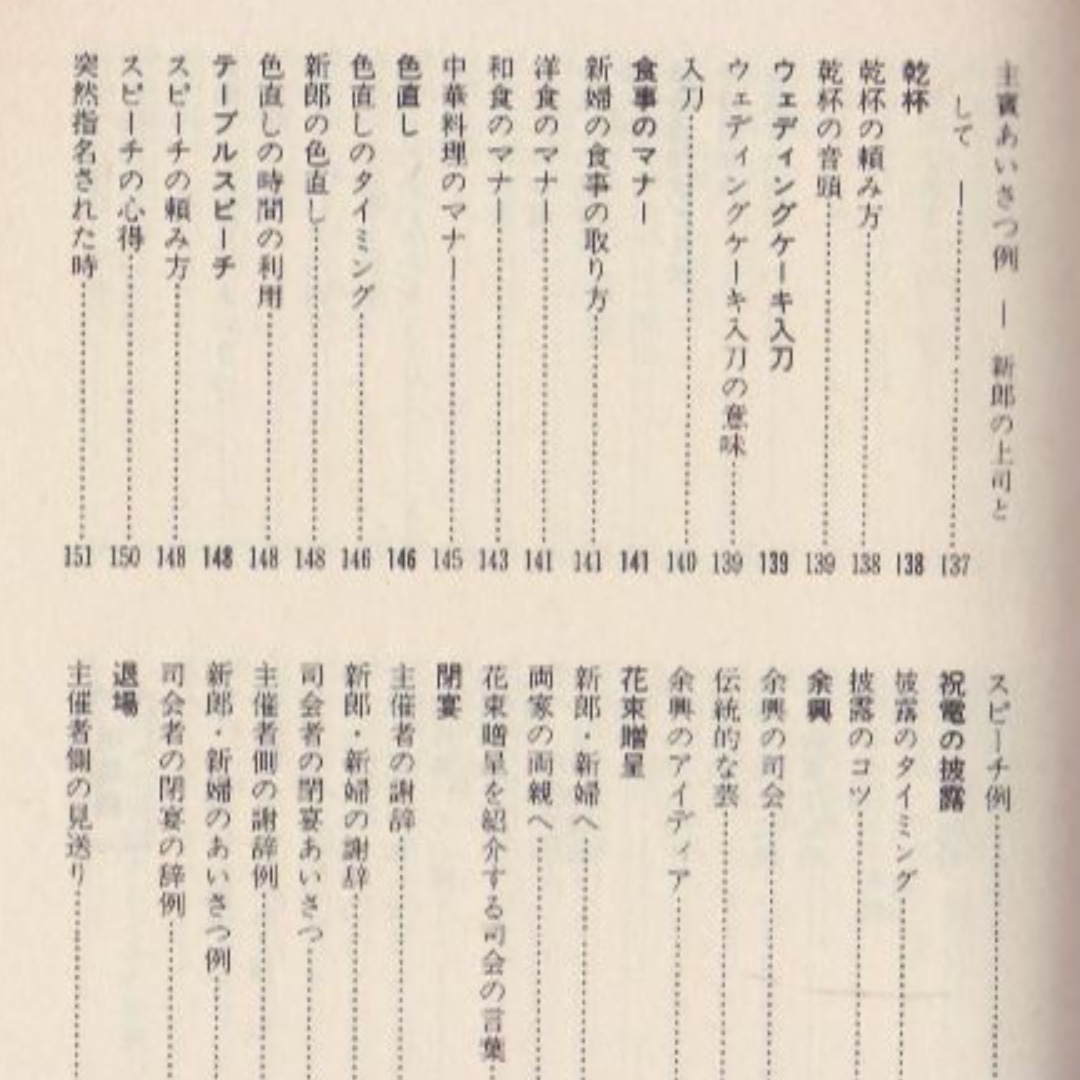 主賓あいさつ例 ― 新郎の上司と
して ―………137
乾杯 138
乾杯の頼み方………138
乾杯の音頭………139
ウェディングケーキ入刀 139
ウェディングケーキ入刀の意味………139
入刀………140
食事のマナー 141
新婦の食事の取り方………141
洋食のマナー………141
和食のマナー………143
中華料理のマナー………145
色直し 146
色直しのタイミング………146
新郎の色直し………148
色直しの時間の利用………148
テーブルスピーチ 148
スピーチの頼み方………148
スピーチの心得………150
突然指名された時………151
スピーチ例………
祝電の披露
披露のタイミング………
披露のコツ………
余興
余興の司会………
伝統的な芸………
余興のアイディア………
花束贈呈
新郎・新婦へ………
両家の両親へ………
花束贈呈を紹介する司会の言葉………
閉宴
主催者の謝辞………
新郎・新婦の謝辞………
司会者の閉宴あいさつ………
主催者側の謝辞例………
新郎・新婦のあいさつ例………
司会者の閉宴の辞例………
退場
主催者側の見送り………